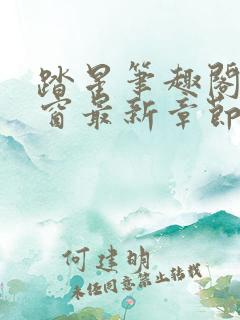 踏星筆趣閣
窗最新章節
何建明
未经同意禁止转载